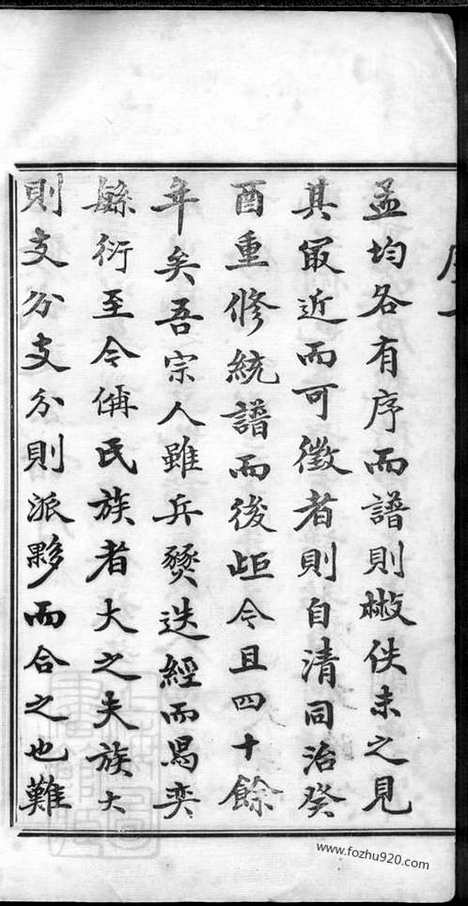 孟均各有序而譜則散佚未之見
其冣近而可徵者則自清同治癸
酉重修統譜而後歫今且四十餘
年矣吾宗人雖兵燹迭經而曷奕
緜衍至今偁氏族者大之夫族大
則支分支分則派夥而合之也難
www.fozhu920.com